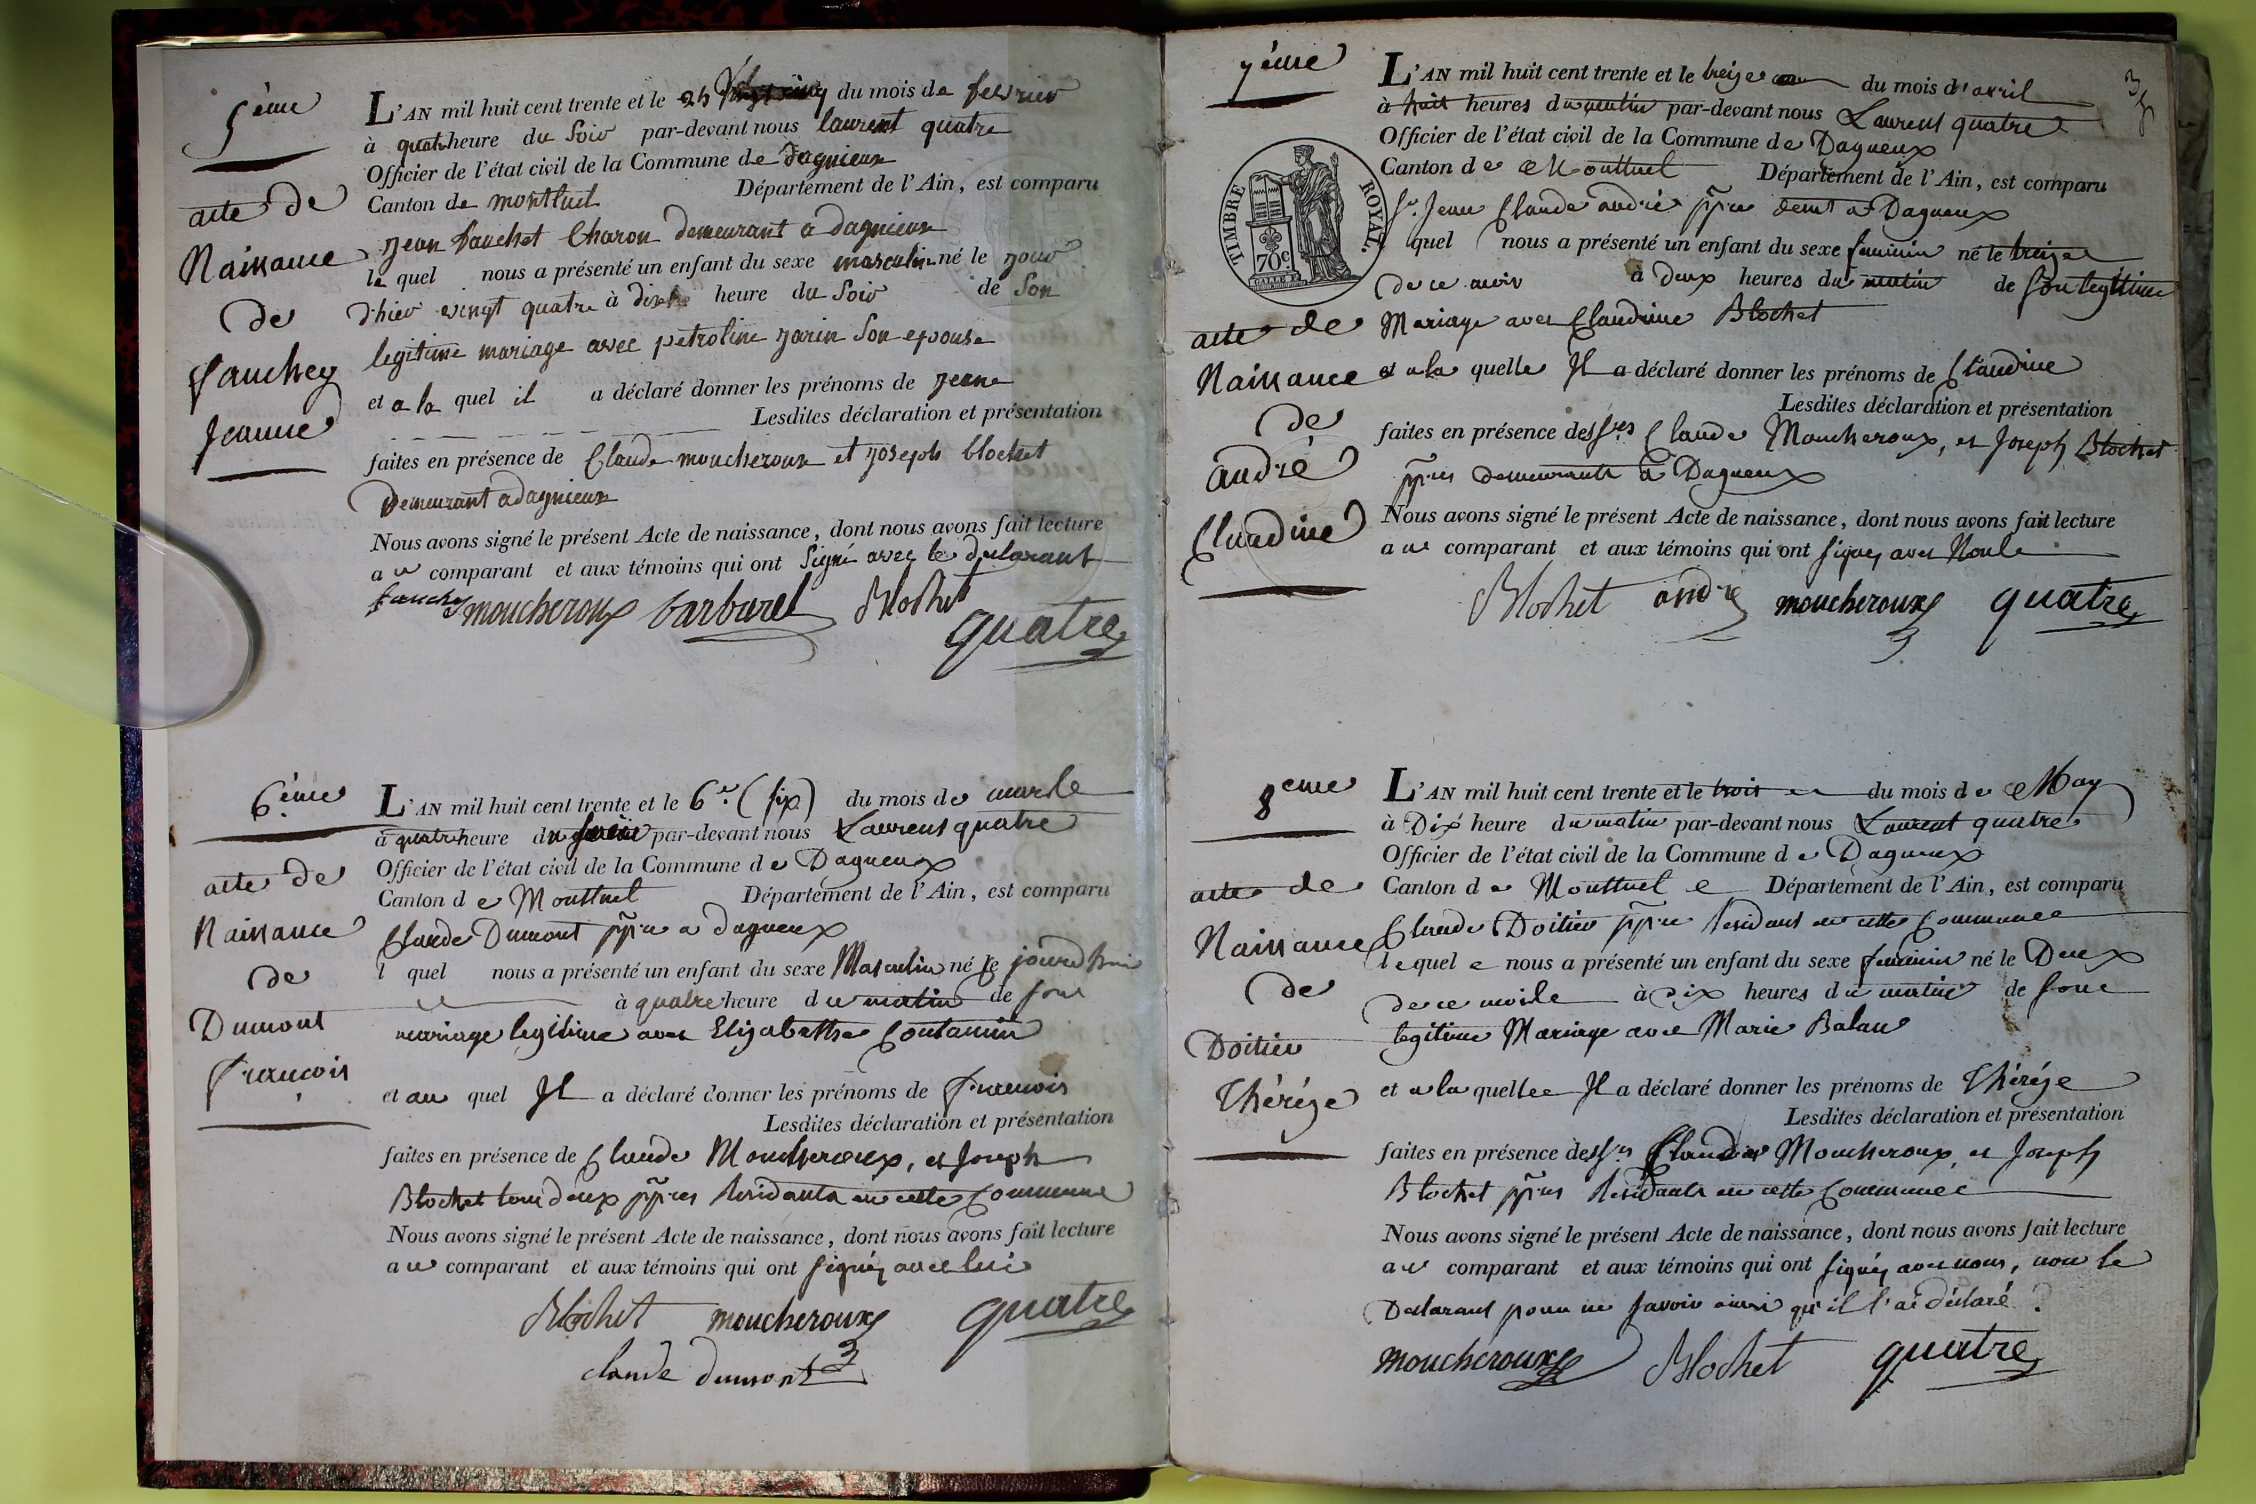 5ème
acte de
Naissance
de
fauchey
Jeanne
L'AN mil huit cent trente et le 25 du mois de fevrier
à quatr heure du Soir par-devant nous laurent quatre
Officier de l'état civil de la Commune de dagnieux
Canton de montluel Département de l'Ain, est comparu
jean fauchet Charon demeurant a dagnieux
le quel nous a présenté un enfant du sexe masculin né le jour
d'hier vingt quatre à dix heure du Soir de Son
legitime mariage avec petroline jarin Son epouse
et a la quel il a déclaré donner les prénoms de jeane
Lesdites déclaration et présentation
faites en présence de Claude moucheroux et joseph blochet
Demeurant a dagnieux
Nous avons signé le présent Acte de naissance, dont nous avons fait lecture
au comparant et aux témoins qui ont Signé avec le declarant
fauchey moucheroux barbaret Blochet
quatre
6ème
acte de
Naissance
de
Dumont
François
L'AN mil huit cent trente et le 6e. (six) du mois de marse
à quatre heure du par-devant nous Laurent quatre
Officier de l'état civil de la Commune de Dagneux
Canton de Montluel Département de l'Ain, est comparu
Claude Dumont ppre a dagneux
l quel nous a présenté un enfant du sexe Masculin né le jourdhui
à quatre heure du matin de sont
mariage legitime avec Elizabetthe Contamin
et au quel Il a déclaré donner les prénoms de François
Lesdites déclaration et présentation
faites en présence de Claude Moucheroux, et Joseph
Blochet tous deux ppres Residants en cette Commune
Nous avons signé le présent Acte de naissance, dont nous avons fait lecture
au comparant et aux témoins qui ont signés avec lui
Blochet moucheroux quatre
claude dumont
7ème
acte de
Naissance
de
andré
Claudine
35
TIMBRE ROYAL
70c
L'AN mil huit cent trente et le treize du mois d'avril
à huit heures du matin par-devant nous Laurent quatre
Officier de l'état civil de la Commune de Dagneux
Canton de Montluel Département de l'Ain, est comparu
Sr. Jean Claude andré ppre demt a Dagneux
quel nous a présenté un enfant du sexe feminin né le treize
de ce mois à Deux heures du matin de son legitime
Mariage avec Claudine Blochet
et a la quelle Il a déclaré donner les prénoms de Claudine
Lesdites déclaration et présentation
faites en présence des Srs Claude Moucheroux, et Joseph Blochet
ppres demeurants a Dagneux
Nous avons signé le présent Acte de naissance, dont nous avons fait lecture
au comparant et aux témoins qui ont signés avec Nous
Blochet andré moucheroux quatre
8eme
acte de
Naissance
de
Doitier
Thérèze
L'AN mil huit cent trente et le trois du mois de May
à Dix heure du matin par-devant nous Laurent quatre
Officier de l'état civil de la Commune de Dagneux
Canton de Montluel Département de l'Ain, est comparu
Claude Doitier ppre Residant en cette Commune
lequel nous a présenté un enfant du sexe feminin né le Deux
de ce mois à Dix heures du matin de sont
legitime Mariage avec Marie Balan
et a la quelle Il a déclaré donner les prénoms de Thérèze
Lesdites déclaration et présentation
faites en présence des Srs Claude Moucheroux, et Joseph
Blochet ppres Residants en cette Commune
Nous avons signé le présent Acte de naissance, dont nous avons fait lecture
au comparant et aux témoins qui ont signés avec nous, non le
Declarant pour ne savoir ainsi qu'il l'a déclaré
moucheroux Blochet quatre